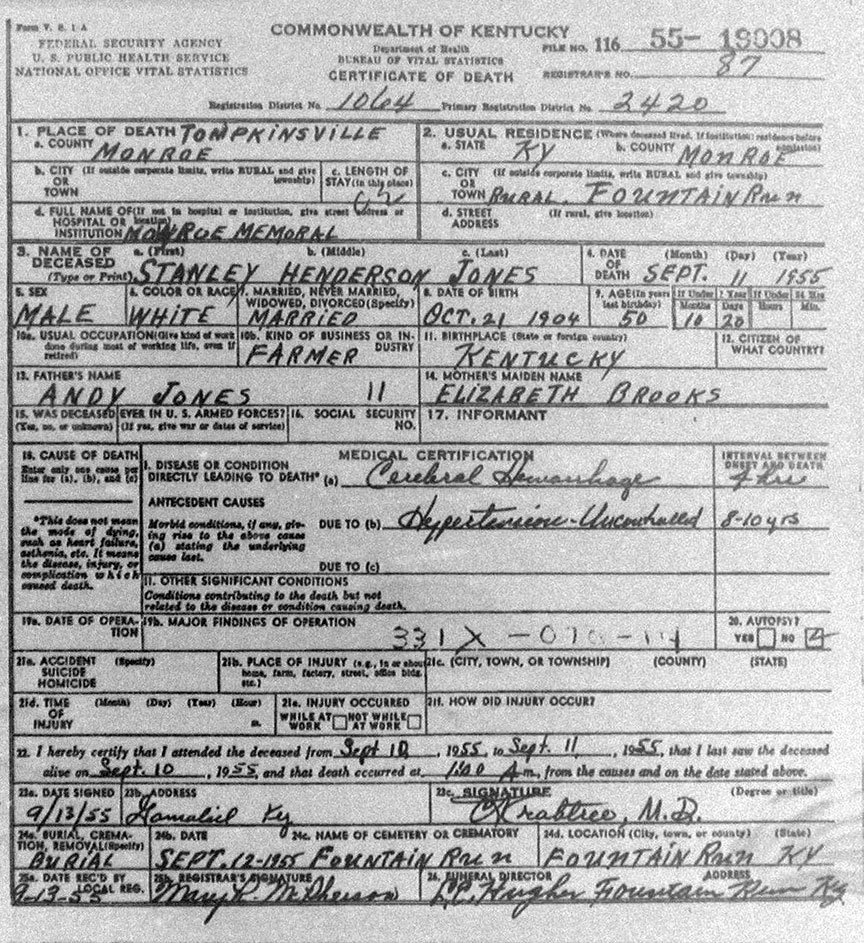 Form V. S. 1-A
FEDERAL SECURITY AGENCY
U. S. PUBLIC HEALTH SERVICE
NATIONAL OFFICE VITAL STATISTICS
COMMONWEALTH OF KENTUCKY
Department of Health
BUREAU OF VITAL STATISTICS
CERTIFICATE OF DEATH
FILE NO. 116 55- 19008
REGISTRAR'S NO. 87
Registration District No. 1064 Primary Registration District No. 2420
1. PLACE OF DEATH TOMPKINSVILLE
a. COUNTY MONROE
2. USUAL RESIDENCE (Where deceased lived. If institution: residence before admission)
a. STATE KY b. COUNTY MONROE
b. CITY OR TOWN (If outside corporate limits, write RURAL and give township)
c. LENGTH OF STAY (in this place)
c. CITY OR TOWN (If outside corporate limits, write RURAL and give township)
RURAL. FOUNTAIN RUN
d. FULL NAME OF HOSPITAL OR INSTITUTION (If not in hospital or institution, give street address or location)
MONROE MEMORAL
d. STREET ADDRESS (If rural, give location)
3. NAME OF DECEASED (Type or Print) a. (First) b. (Middle) c. (Last)
STANLEY HENDERSON JONES
4. DATE OF DEATH (Month) (Day) (Year)
SEPT. 11 1955
5. SEX
MALE
6. COLOR OR RACE
WHITE
7. MARRIED, NEVER MARRIED, WIDOWED, DIVORCED (Specify)
MARRIED
8. DATE OF BIRTH
OCT. 21 1904
9. AGE (In years last birthday) 50
If Under 1 Year Months 10 Days 20
If Under 24 Hrs Hours Min.
10a. USUAL OCCUPATION (Give kind of work done during most of working life, even if retired)
10b. KIND OF BUSINESS OR INDUSTRY
FARMER
11. BIRTHPLACE (State or foreign country)
KENTUCKY
12. CITIZEN OF WHAT COUNTRY?
13. FATHER'S NAME
ANDY JONES 11
14. MOTHER'S MAIDEN NAME
ELIZABETH BROOKS
15. WAS DECEASED EVER IN U. S. ARMED FORCES?
(Yes, no, or unknown) (If yes, give war or dates of service)
16. SOCIAL SECURITY NO.
17. INFORMANT
18. CAUSE OF DEATH
Enter only one cause per line for (a), (b), and (c)
*This does not mean the mode of dying, such as heart failure, asthenia, etc. It means the disease, injury, or complication which caused death.
MEDICAL CERTIFICATION
INTERVAL BETWEEN ONSET AND DEATH
I. DISEASE OR CONDITION DIRECTLY LEADING TO DEATH* (a) Cerebral Hemorrhage
4 hrs
ANTECEDENT CAUSES
Morbid conditions, if any, giving rise to the above cause (a) stating the underlying cause last.
DUE TO (b) Hypertension-Uncontrolled 8-10 yrs
DUE TO (c)
II. OTHER SIGNIFICANT CONDITIONS
Conditions contributing to the death but not related to the disease or condition causing death.
19a. DATE OF OPERATION
19b. MAJOR FINDINGS OF OPERATION
331X
20. AUTOPSY?
YES NO
21a. ACCIDENT SUICIDE HOMICIDE (Specify)
21b. PLACE OF INJURY (e.g., in or about home, farm, factory, street, office bldg. etc.)
21c. (CITY, TOWN, OR TOWNSHIP) (COUNTY) (STATE)
21d. TIME OF INJURY (Month) (Day) (Year) (Hour) m.
21e. INJURY OCCURRED
WHILE AT WORK NOT WHILE AT WORK
21f. HOW DID INJURY OCCUR?
22. I hereby certify that I attended the deceased from Sept 10, 1955, to Sept. 11, 1955, that I last saw the deceased
alive on Sept. 10, 1955, and that death occurred at A m., from the causes and on the date stated above.
23a. DATE SIGNED
9/13/55
23b. ADDRESS
Gamaliel Ky
23c. SIGNATURE (Degree or title)
Crabtree, M.D.
24a. BURIAL, CREMATION, REMOVAL (Specify)
BURIAL
24b. DATE
SEPT. 12-1955
24c. NAME OF CEMETERY OR CREMATORY
FOUNTAIN RUN
24d. LOCATION (City, town, or county) (State)
FOUNTAIN RUN KY
25a. DATE REC'D BY LOCAL REG.
9-13-55
25b. REGISTRAR'S SIGNATURE
Mary R. McPherson
26. FUNERAL DIRECTOR ADDRESS
Fountain Run Ky